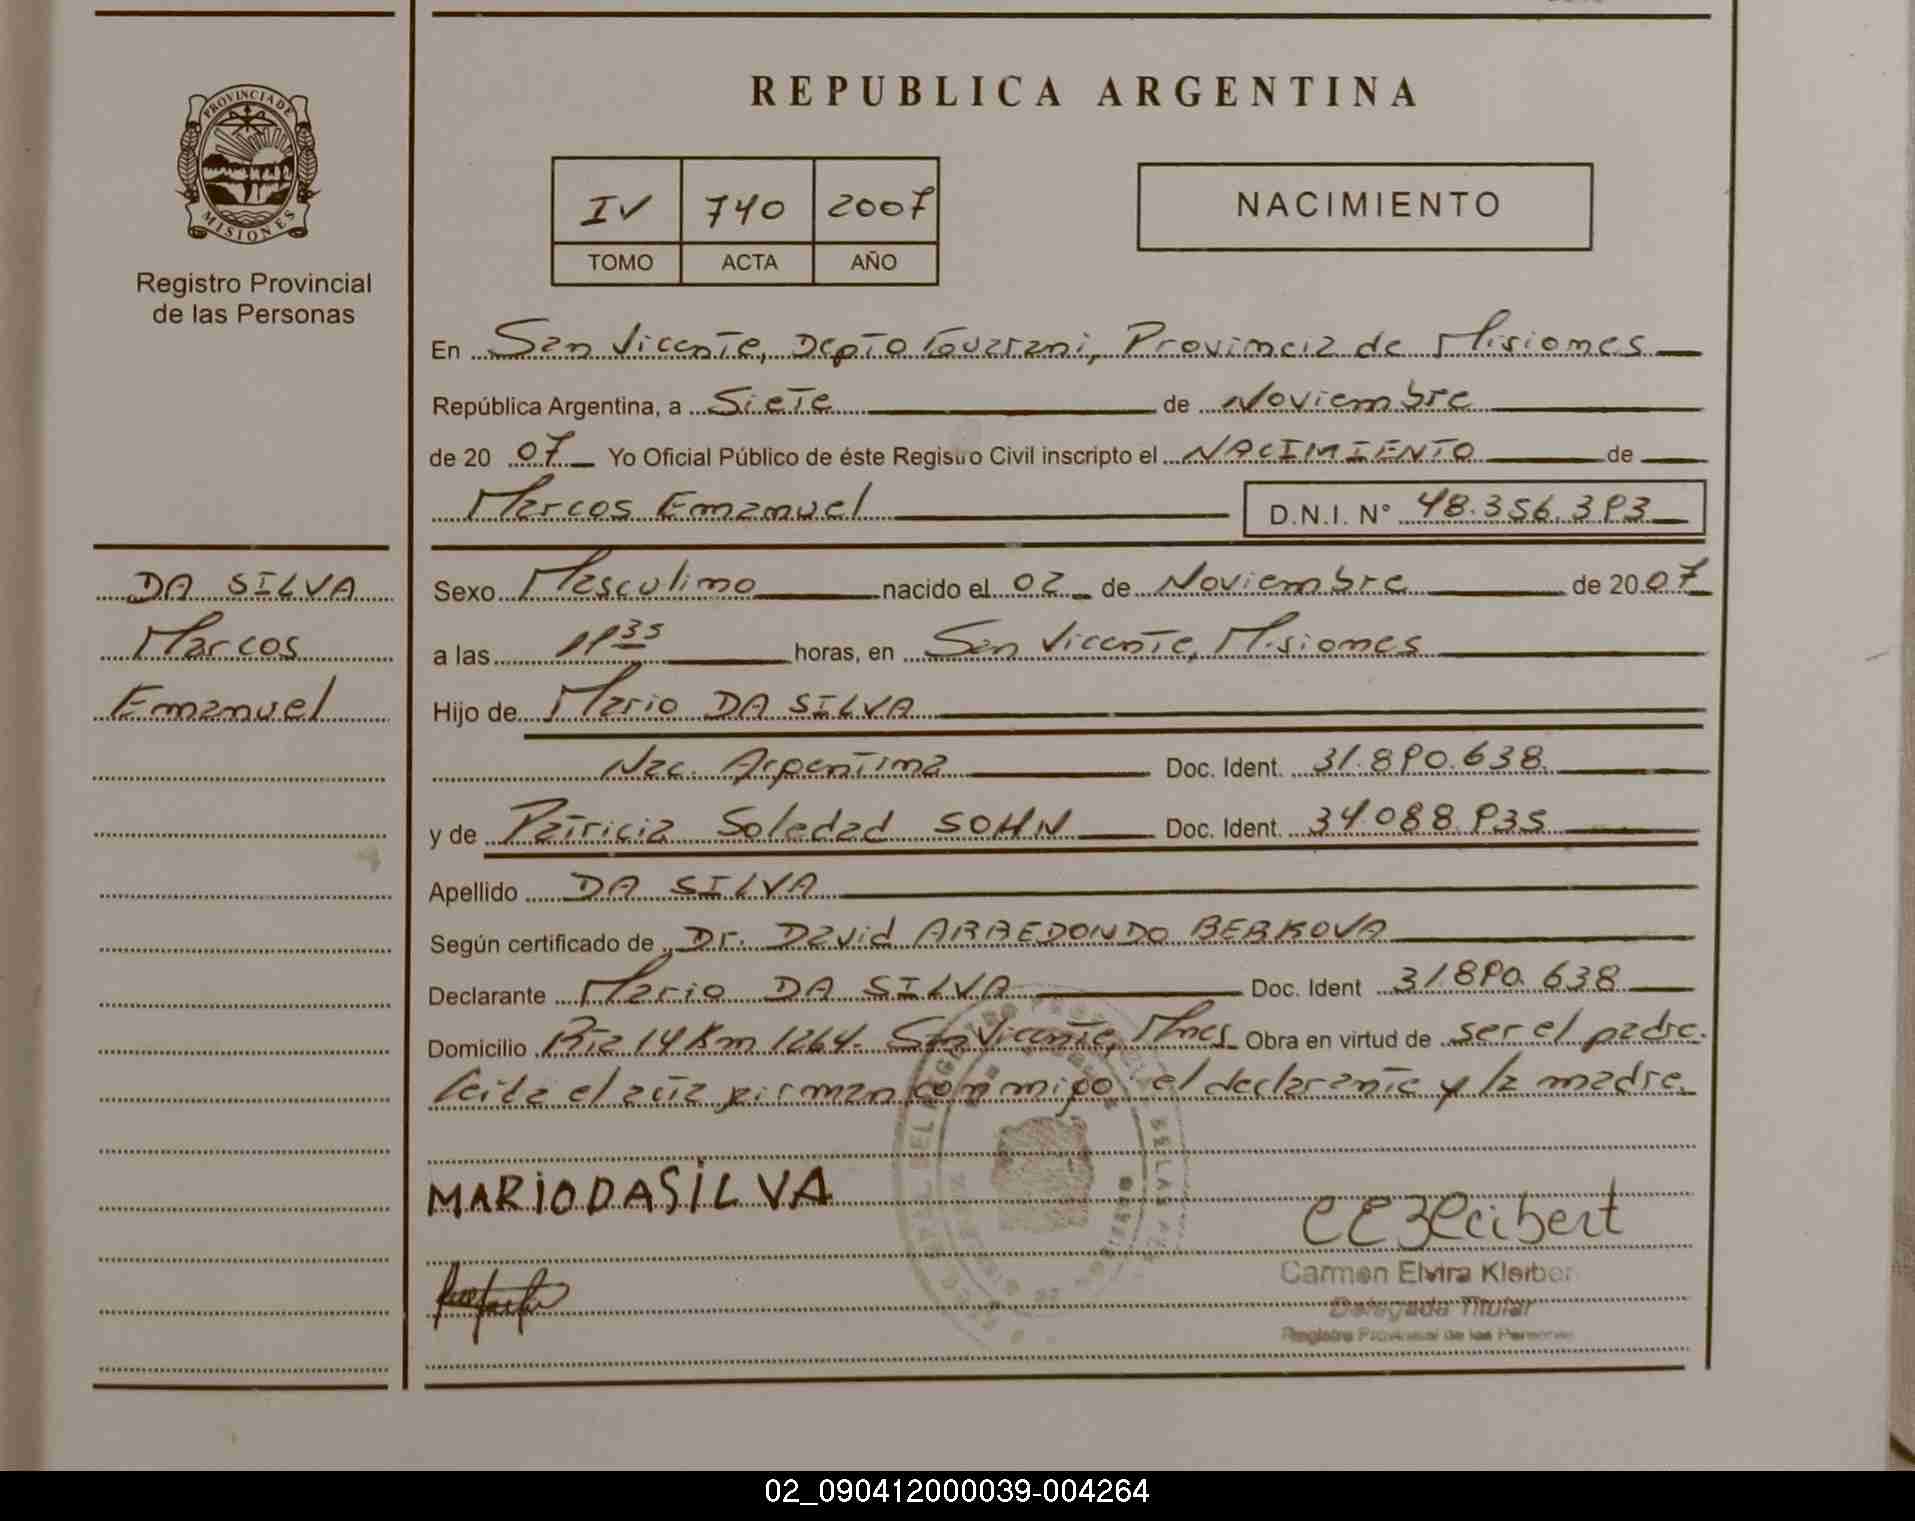 REPUBLICA ARGENTINA
PROVINCIA DE
MISIONES
Registro Provincial
de las Personas
IV 740 2007
TOMO ACTA AÑO
NACIMIENTO
En San Vicente, Depto Guarani, Provincia de Misiones
República Argentina, a Siete de Noviembre
de 20 07 Yo Oficial Público de éste Registro Civil inscripto el NACIMIENTO de
Marcos Emanuel D.N.I. N° 48.356.393
DA SILVA
Marcos
Emanuel
Sexo Masculino nacido el 02 de Noviembre de 20 07
a las 11 35 horas, en San Vicente, Misiones
Hijo de Mario DA SILVA
Nac. Argentina Doc. Ident. 31.890.638
y de Patricia Soledad SOHN Doc. Ident. 34088935
Apellido DA SILVA
Según certificado de Dr. David ARREDONDO BERKOVA
Declarante Mario DA SILVA Doc. Ident 31890.638
Domicilio Rta 14 Km 1264. San Vicente, Mnes Obra en virtud de ser el padre.
Leida el acta firman conmigo el declarante y la madre.
MARIO DA SILVA
Carmen Elvira Kleiber
Delegada Titular
Registro Provincial de las Personas
02_090412000039-004264